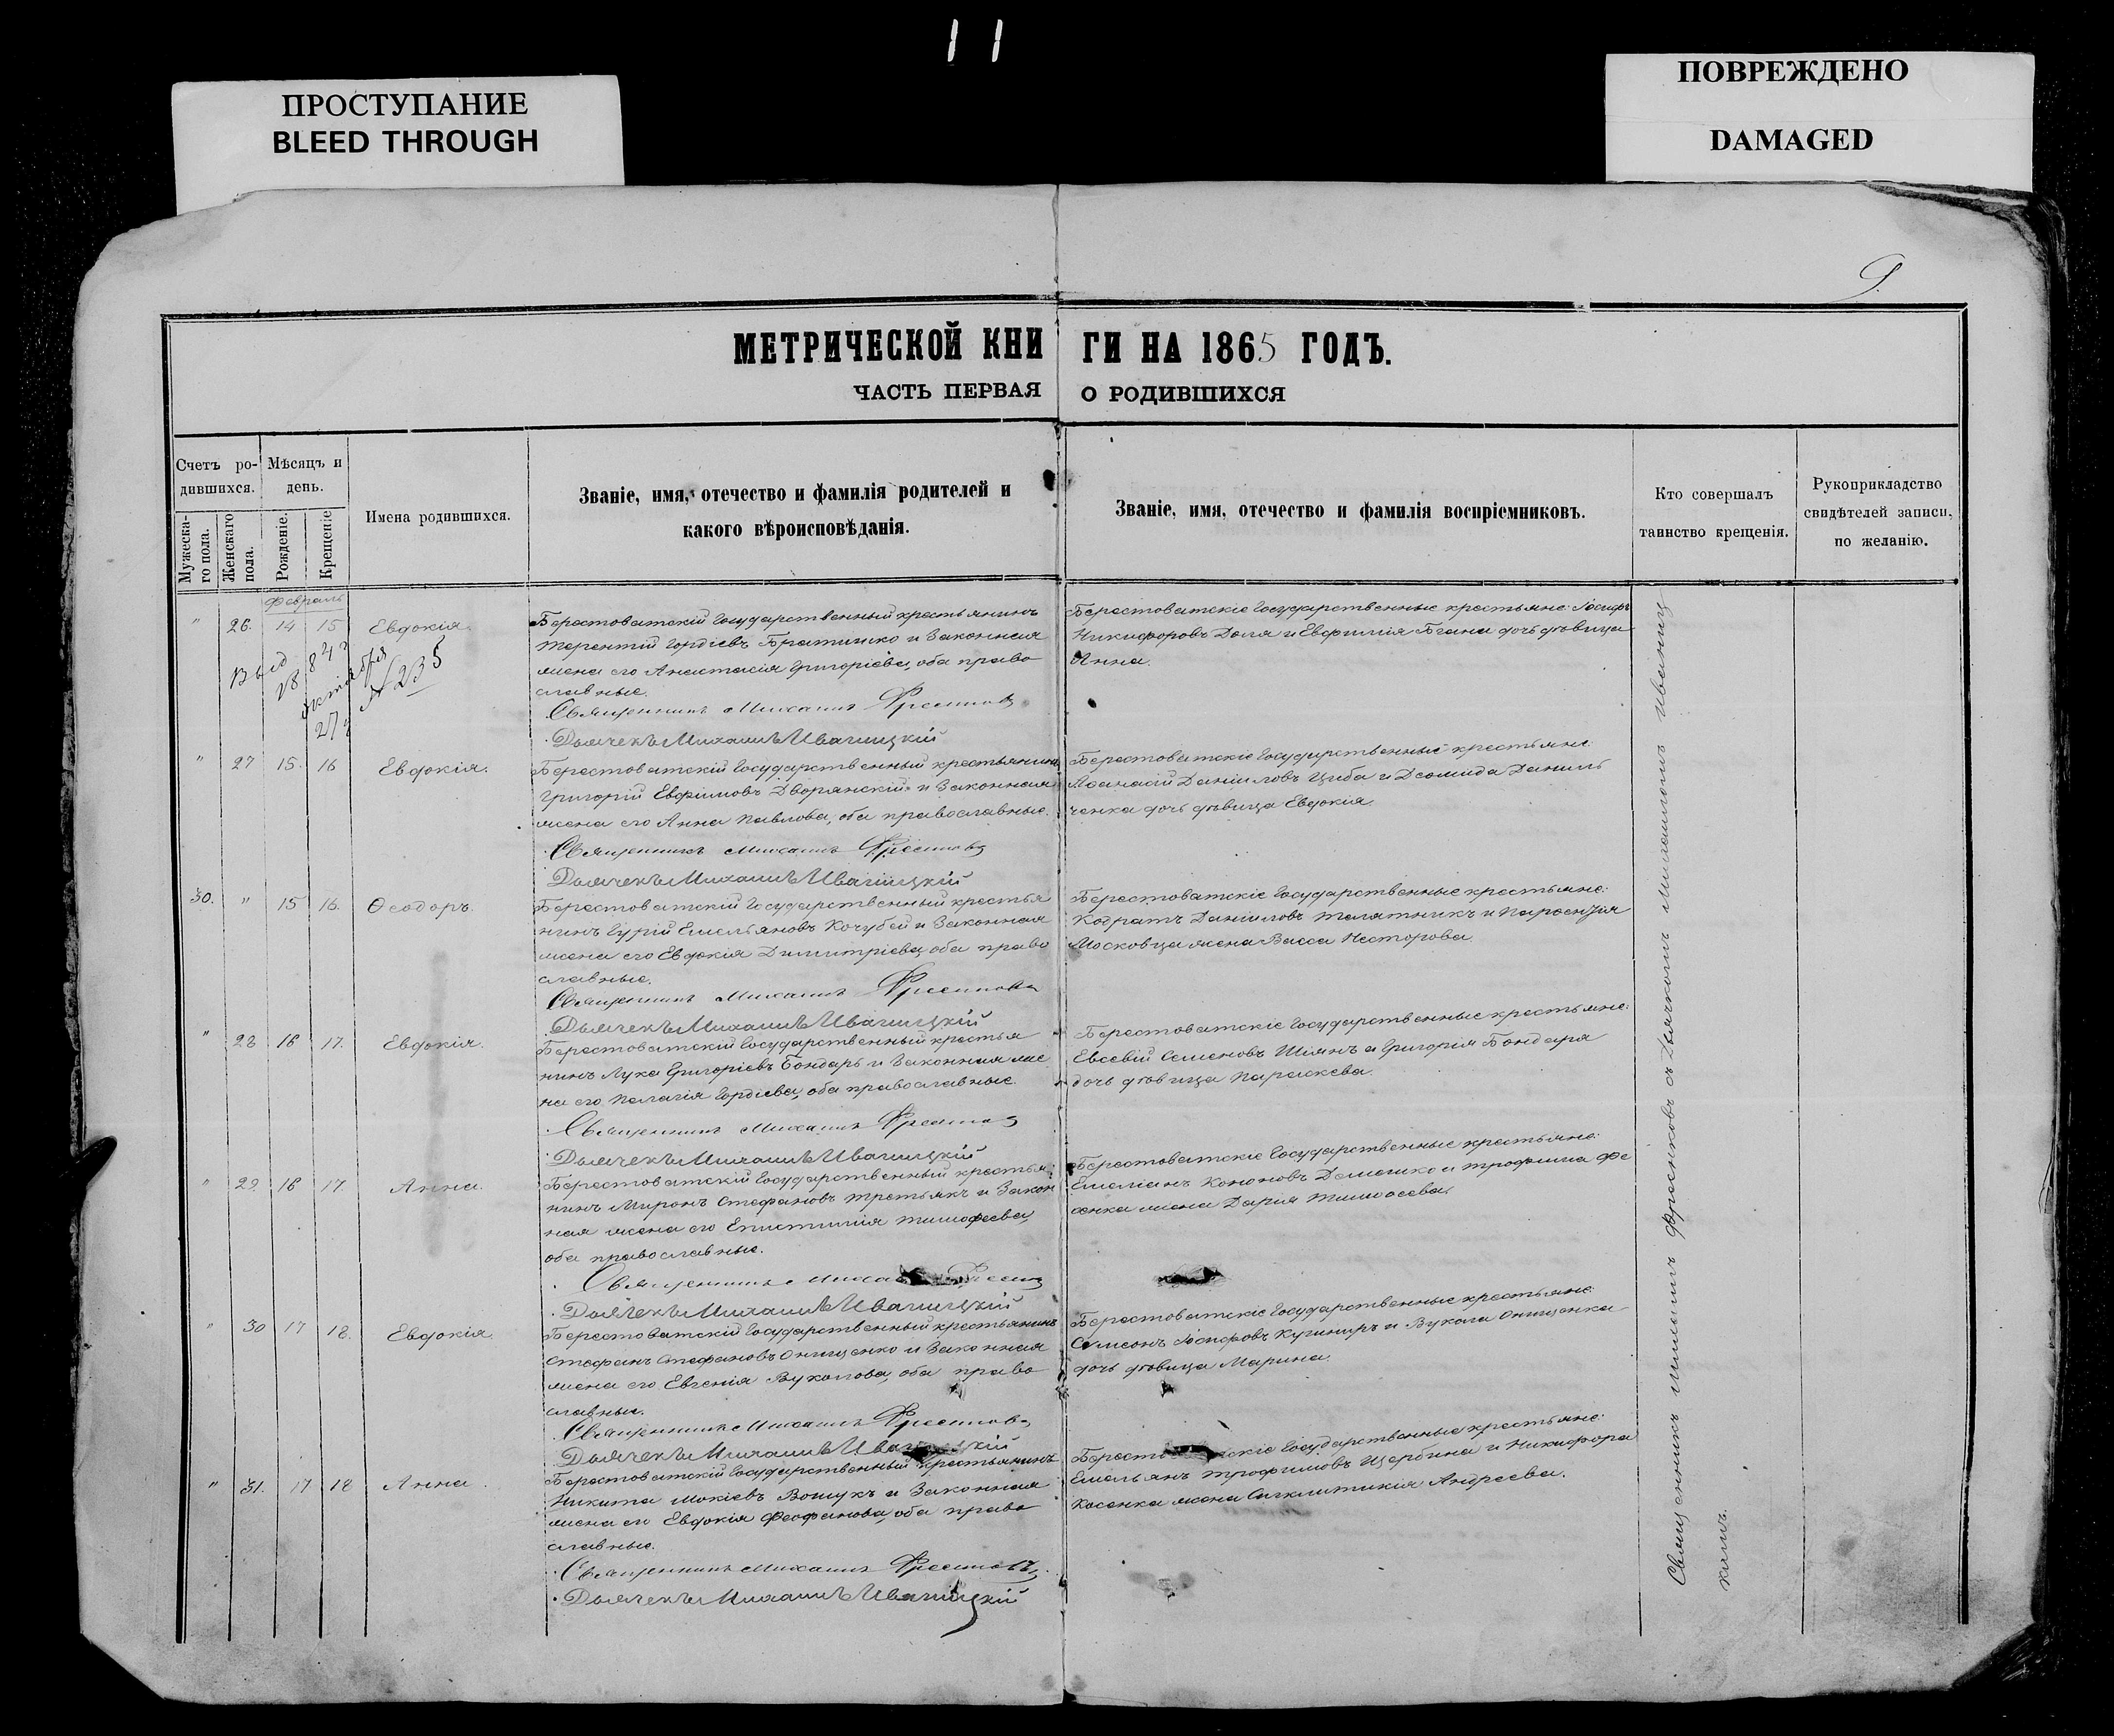 11
ПРОСТУПАНИЕ
BLEED THROUGH
ПОВРЕЖДЕНО
DAMAGED
9.
МЕТРИЧЕСКОЙ КНИ ГИ НА 1865 ГОДЪ.
ЧАСТЬ ПЕРВАЯ О РОДИВШИХСЯ
Счетъ ро-
дившихся.
Мужеска-
го пола.
Женскаго
пола.
Мѣсяцъ и
день.
Рожденіе.
Крещеніе
Имена родившихся.
Званіе, имя, отечество и фамилія родителей и
какого вѣроисповѣданія.
Званіе, имя, отечество и фамилія воспріемниковъ.
Кто совершалъ
таинство крещенія.
Рукоприкладство
свидѣтелей записи,
по желанію.
Февраль
" 26. 14 15 Евдокія.
Берестоватскій Государственный крестьянинъ
Терентій Гордіевъ Братишко и Законная
жена его Анастасія Григоріева, оба право
славные.
Священникъ Михаилъ
Дьячекъ Михаилъ Иваницкій
Берестоватскіе Государственные крестьяне: Іосифъ
Никифоровъ Доля и Евфимія дочь дѣвица
Анна.
Выд
октября
27
№ 235
" 27 15. 16 Евдокія.
Берестоватскій Государственный крестьянинъ
Григорій Евфимовъ Дворянскій и Законная
жена его Анна Павлова, оба православные.
Священникъ Михаилъ
Дьячекъ Михаилъ Иваницкій
Берестоватскіе Государственные крестьяне:
Аѳанасій Даніиловъ Циба и Деомида Даниль
ченка дочь дѣвица Евдокія.
30. " 15 16. Ѳеодоръ.
Берестоватскій Государственный крестья
нинъ Гурій Емельяновъ Кочубей и Законная
жена его Евдокія Димитріева, оба право
славные.
Священникъ Михаилъ
Дьячекъ Михаилъ Иваницкій
Берестоватскіе Государственные крестьяне:
Кодратъ Даніиловъ Телятникъ и Парѳентія
Московца жена Васса Несторова.
" 28 16 17. Евдокія.
Берестоватскій Государственный крестья
нинъ Лука Григоріевъ Бондарь и Законная же
на его Пелагія Гордіева, оба православные.
Священникъ Михаилъ
Дьячекъ Михаилъ Иваницкій
Берестоватскіе Государственные крестьяне:
Евсевій Семеновъ Шіянъ и Григорія Бондаря
дочь дѣвица Параскева.
" 29. 16 17. Анна.
Берестоватскій Государственный крестья
нинъ Миронъ Стефановъ Третьякъ и Закон
ная жена его Епистимія Тимофеева,
оба православные.
Священникъ
Дьячекъ Михаилъ Иваницкій
Берестоватскіе Государственные крестьяне:
Емеліанъ Кононовъ и Трофима Фе
сенка жена Дарія Тимоѳеева.
" 30 17 18. Евдокія.
Берестоватскій Государственный крестьянинъ
Стефанъ Стефановъ Онищенко и Законная
жена его Евгенія Вуколова, оба право
славные.
Священникъ Михаилъ
Дьячекъ Михаилъ Иваницкій
Берестоватскіе Государственные крестьяне:
Самсонъ Іосифовъ Кушниръ и Вукола Онищенка
дочь дѣвица Марина.
" 31. 17 18 Анна.
Берестоватскій Государственный крестьянинъ
Никита Мокіевъ и Законная
жена его Евдокія Феофанова, оба право
славные.
Священникъ Михаилъ
Дьячекъ Михаилъ Иваницкій
Государственные крестьяне:
Емельянъ Трофимовъ Щербина и Никифора
Косенка жена Сигклитикія Андреева.
Священникъ Михаилъ съ Дьячкомъ Михаиломъ Иваниц
кимъ.